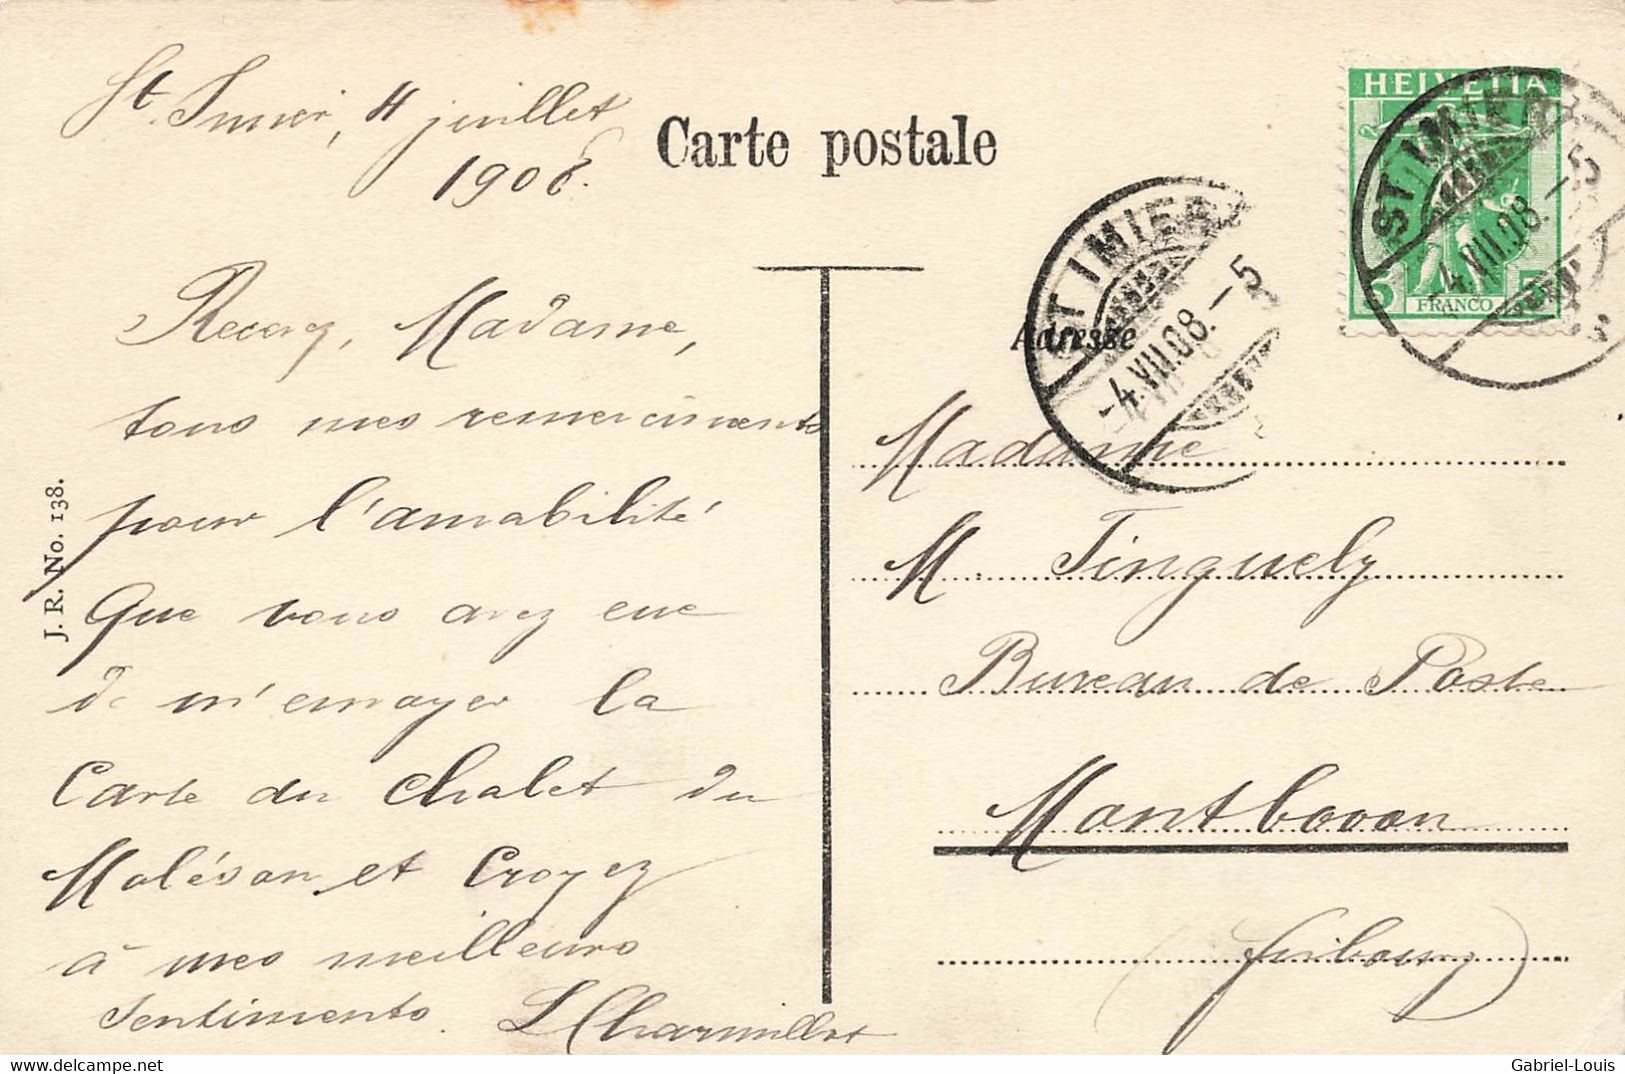 St. Imier, 4 juillet
1908.
Carte postale
HELVETIA
5
FRANCO
ST IMIER
-4.VII.08.-5
ST IMIER
-4.VII.08.-5
Adresse
Recevez, Madame,
tous mes remerciments
pour l'amabilité
Que vous avez eue
de m'envoyer la
Carte du chalet du
Moléson et Croyez
à mes meilleurs
Sentiments. L Charmillot
Madame
M. Tinguely
Bureau de Poste
Montbovon
(fribourg)
J. R. No. 138.
delcampe.net
Gabriel-Louis